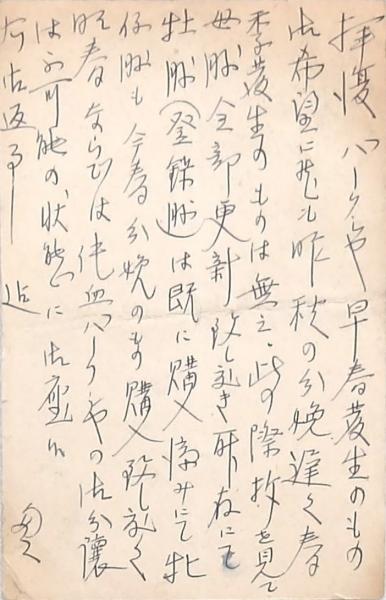 拝復 バークシヤ早春發生のもの
御希望に候も昨秋の分娩遅く春
季發生のものは無之、此の際折を見て
母豚全部更新致し度き所存にて
牡豚(登録豚)は既に購入済みにて牝
仔豚も今春分娩のもの購入致し度く
晩春ならでは純血バークシヤの御分讓
は不可能の状態に御座候
右御返事迄